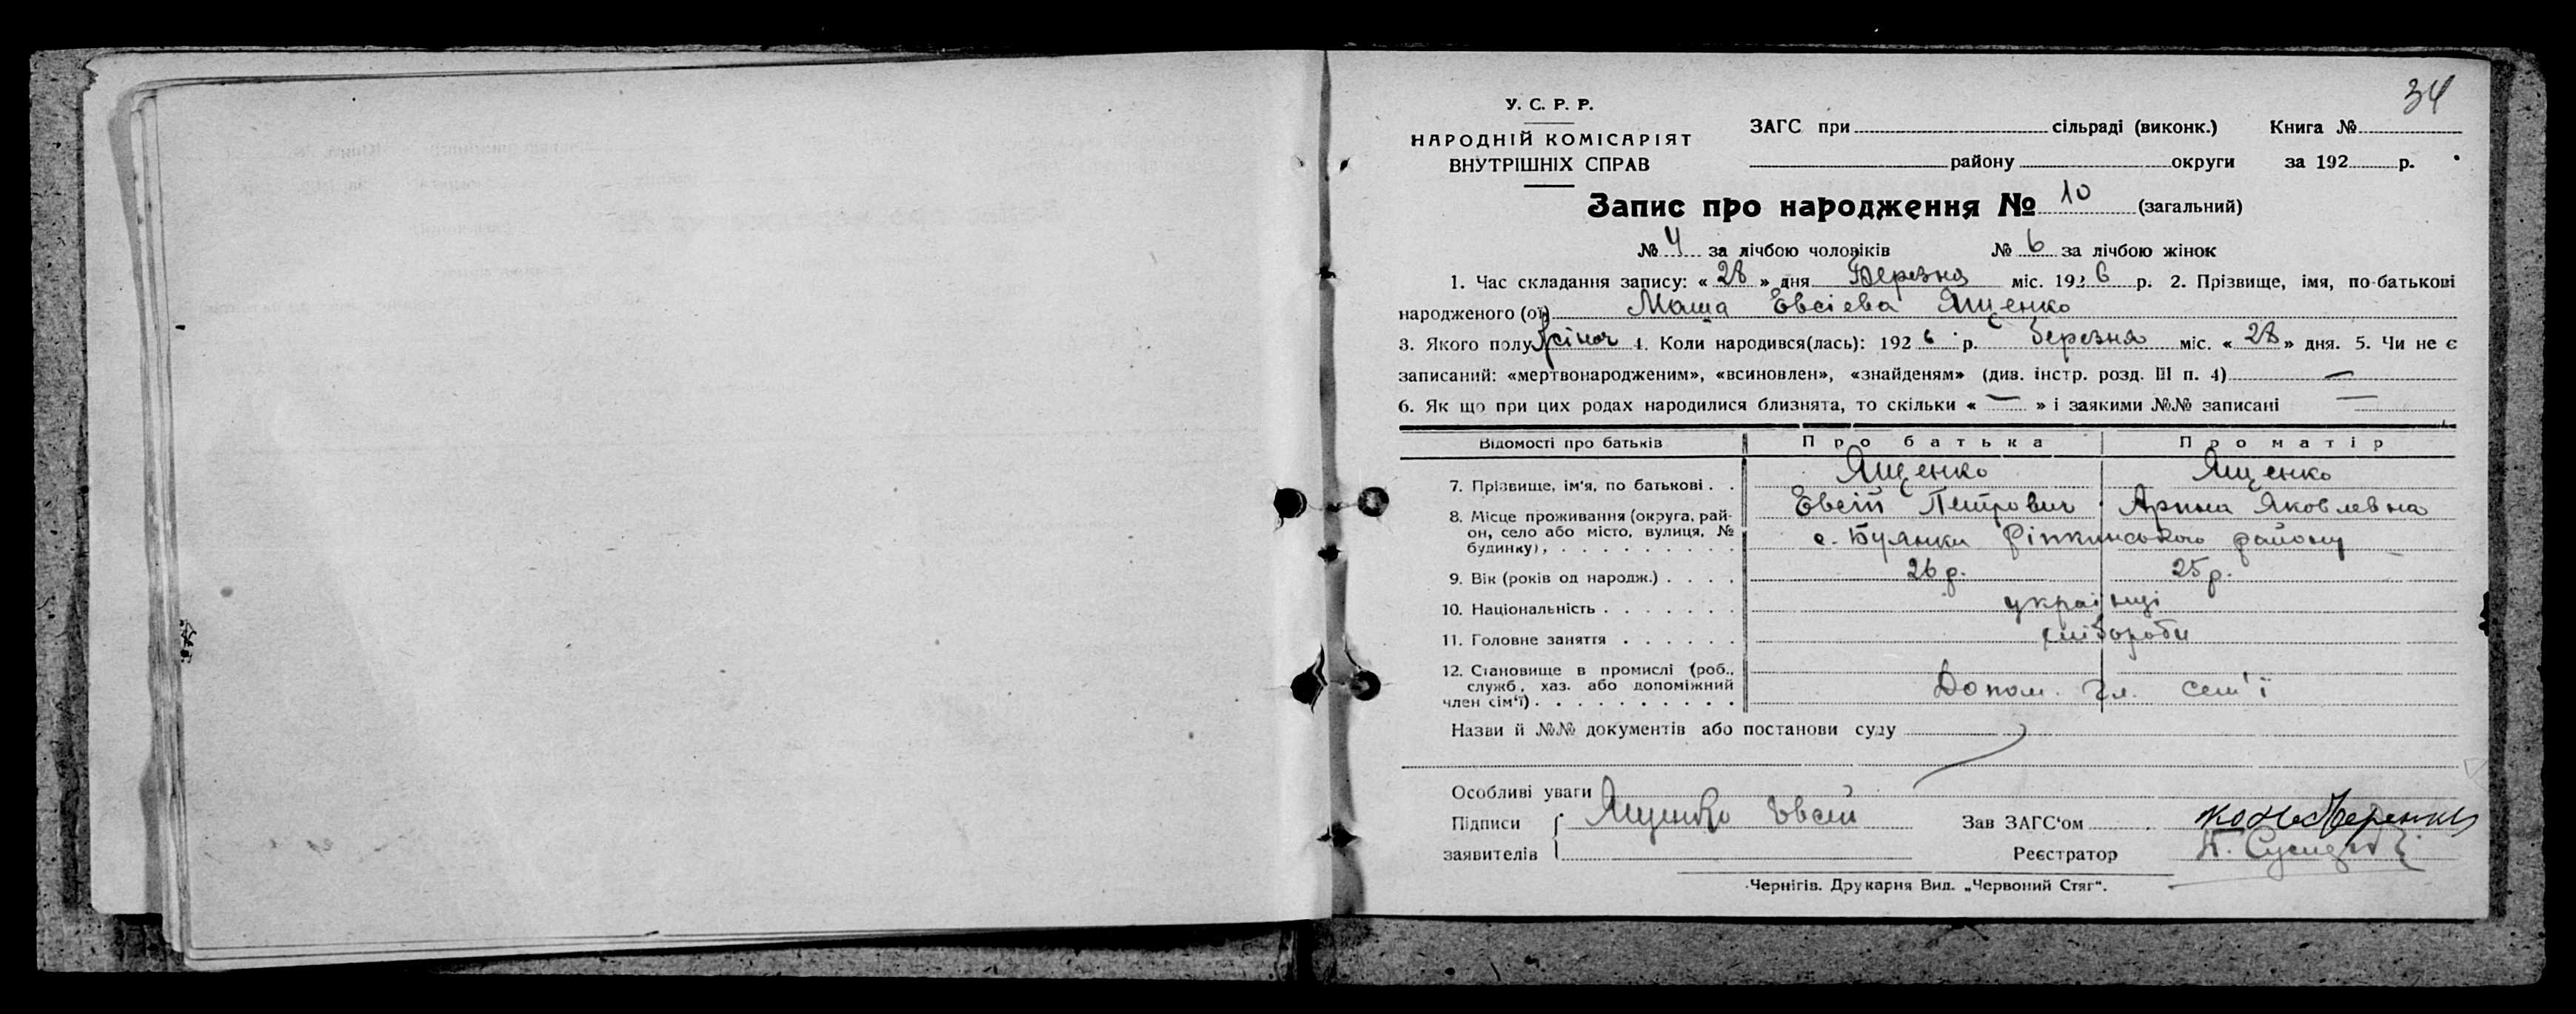 34
У. С. Р. Р.
НАРОДНІЙ КОМІСАРІЯТ
ВНУТРІШНІХ СПРАВ
ЗАГС при сільраді (виконк.) Книга №
району округи за 192 р.
Запис про народження № 10 (загальний)
№ 4 за лічбою чоловіків № 6 за лічбою жінок
1. Час складання запису: « 28 » дня Березня міс. 1926 р. 2. Прізвище, імя, по-батькові
народженого (ої) Маша Евсіева Ященко
3. Якого полу жіноч 4. Коли народився(лась): 1926 р. березня міс. « 28 » дня. 5. Чи не є
записаний: «мертвонародженим», «всиновлен», «знайденям» (див. інстр. розд. III п. 4) —
6. Як що при цих родах народилися близнята, то скільки « — » і заякими №№ записані —
Відомості про батьків Про батька Про матір
7. Прізвище, ім'я, по батькові . . Ященко Ященко
Евсій Петрович Арина Яковлевна
8. Місце проживання (округа, рай-
он, село або місто, вулиця, №
будинку), . . . . . . . . . . с. Буянки Ріпкинського району
9. Вік (років од народж.) . . . . 26 р. 25 р.
10. Національність . . . . . . . українці
11. Головне заняття . . . . . .
12. Становище в промислі (роб.,
служб, хаз. або допоміжний
член сім'ї) . . . . . . . . . . Допом. гл. сем'ї
Назви й №№ документів або постанови суду
Особливі уваги
Підписи
заявителів
Ященко Евсей
Зав ЗАГС'ом
Реєстратор
Чернігів. Друкарня Вид. „Червоний Стяг“.